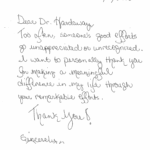 Dear Dr. Hardaway
Too often someone's good efforts
go unappreciated or unrecognized.
I want to personally thank you
for making a meaningful
difference in my life through
your remarkable efforts.
Thank you!
Sincerely,